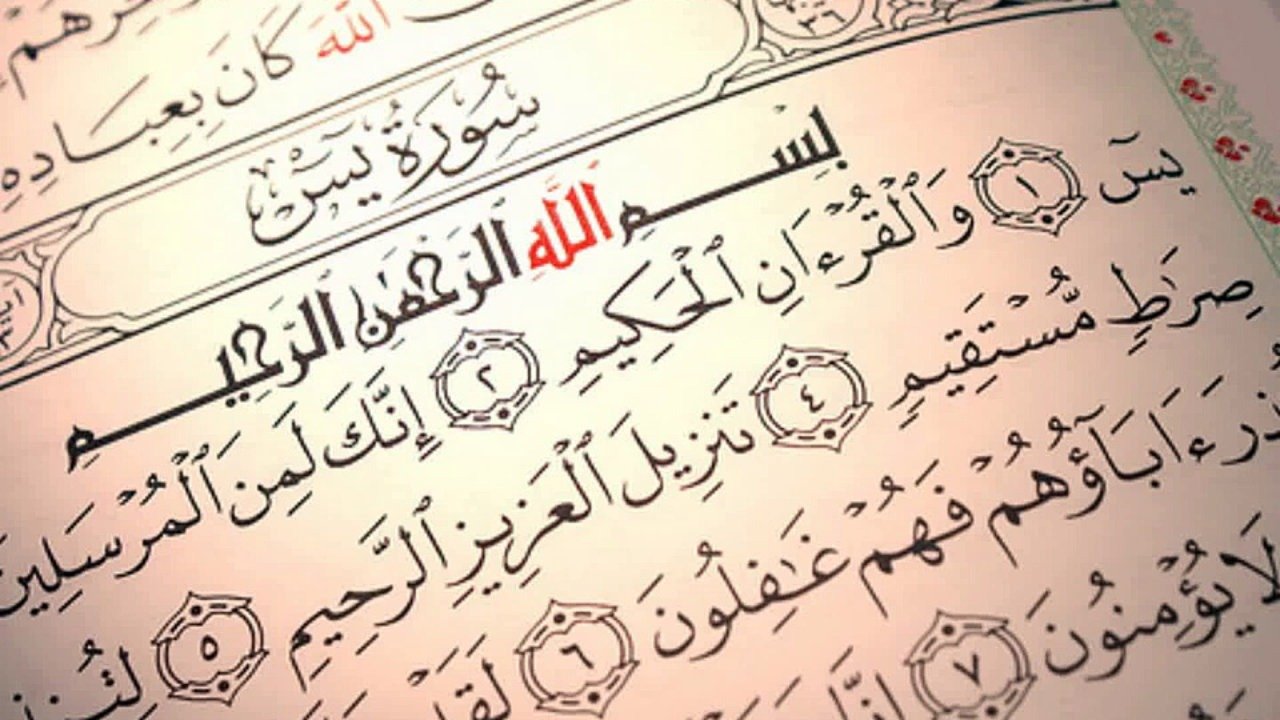 كَانَ بِعِبَادِهِ ٱللَّهَ
سُورَةُ يسٓ
بِسْمِ ٱللَّهِ ٱلرَّحْمَٰنِ ٱلرَّحِيمِ
يسٓ ١ وَٱلْقُرْءَانِ ٱلْحَكِيمِ ٢ إِنَّكَ لَمِنَ ٱلْمُرْسَلِينَ
صِرَٰطٍ مُّسْتَقِيمٍ ٤ تَنزِيلَ ٱلْعَزِيزِ ٱلرَّحِيمِ ٥
ءَابَآؤُهُمْ فَهُمْ غَٰفِلُونَ ٦
لَا يُؤْمِنُونَ ٧